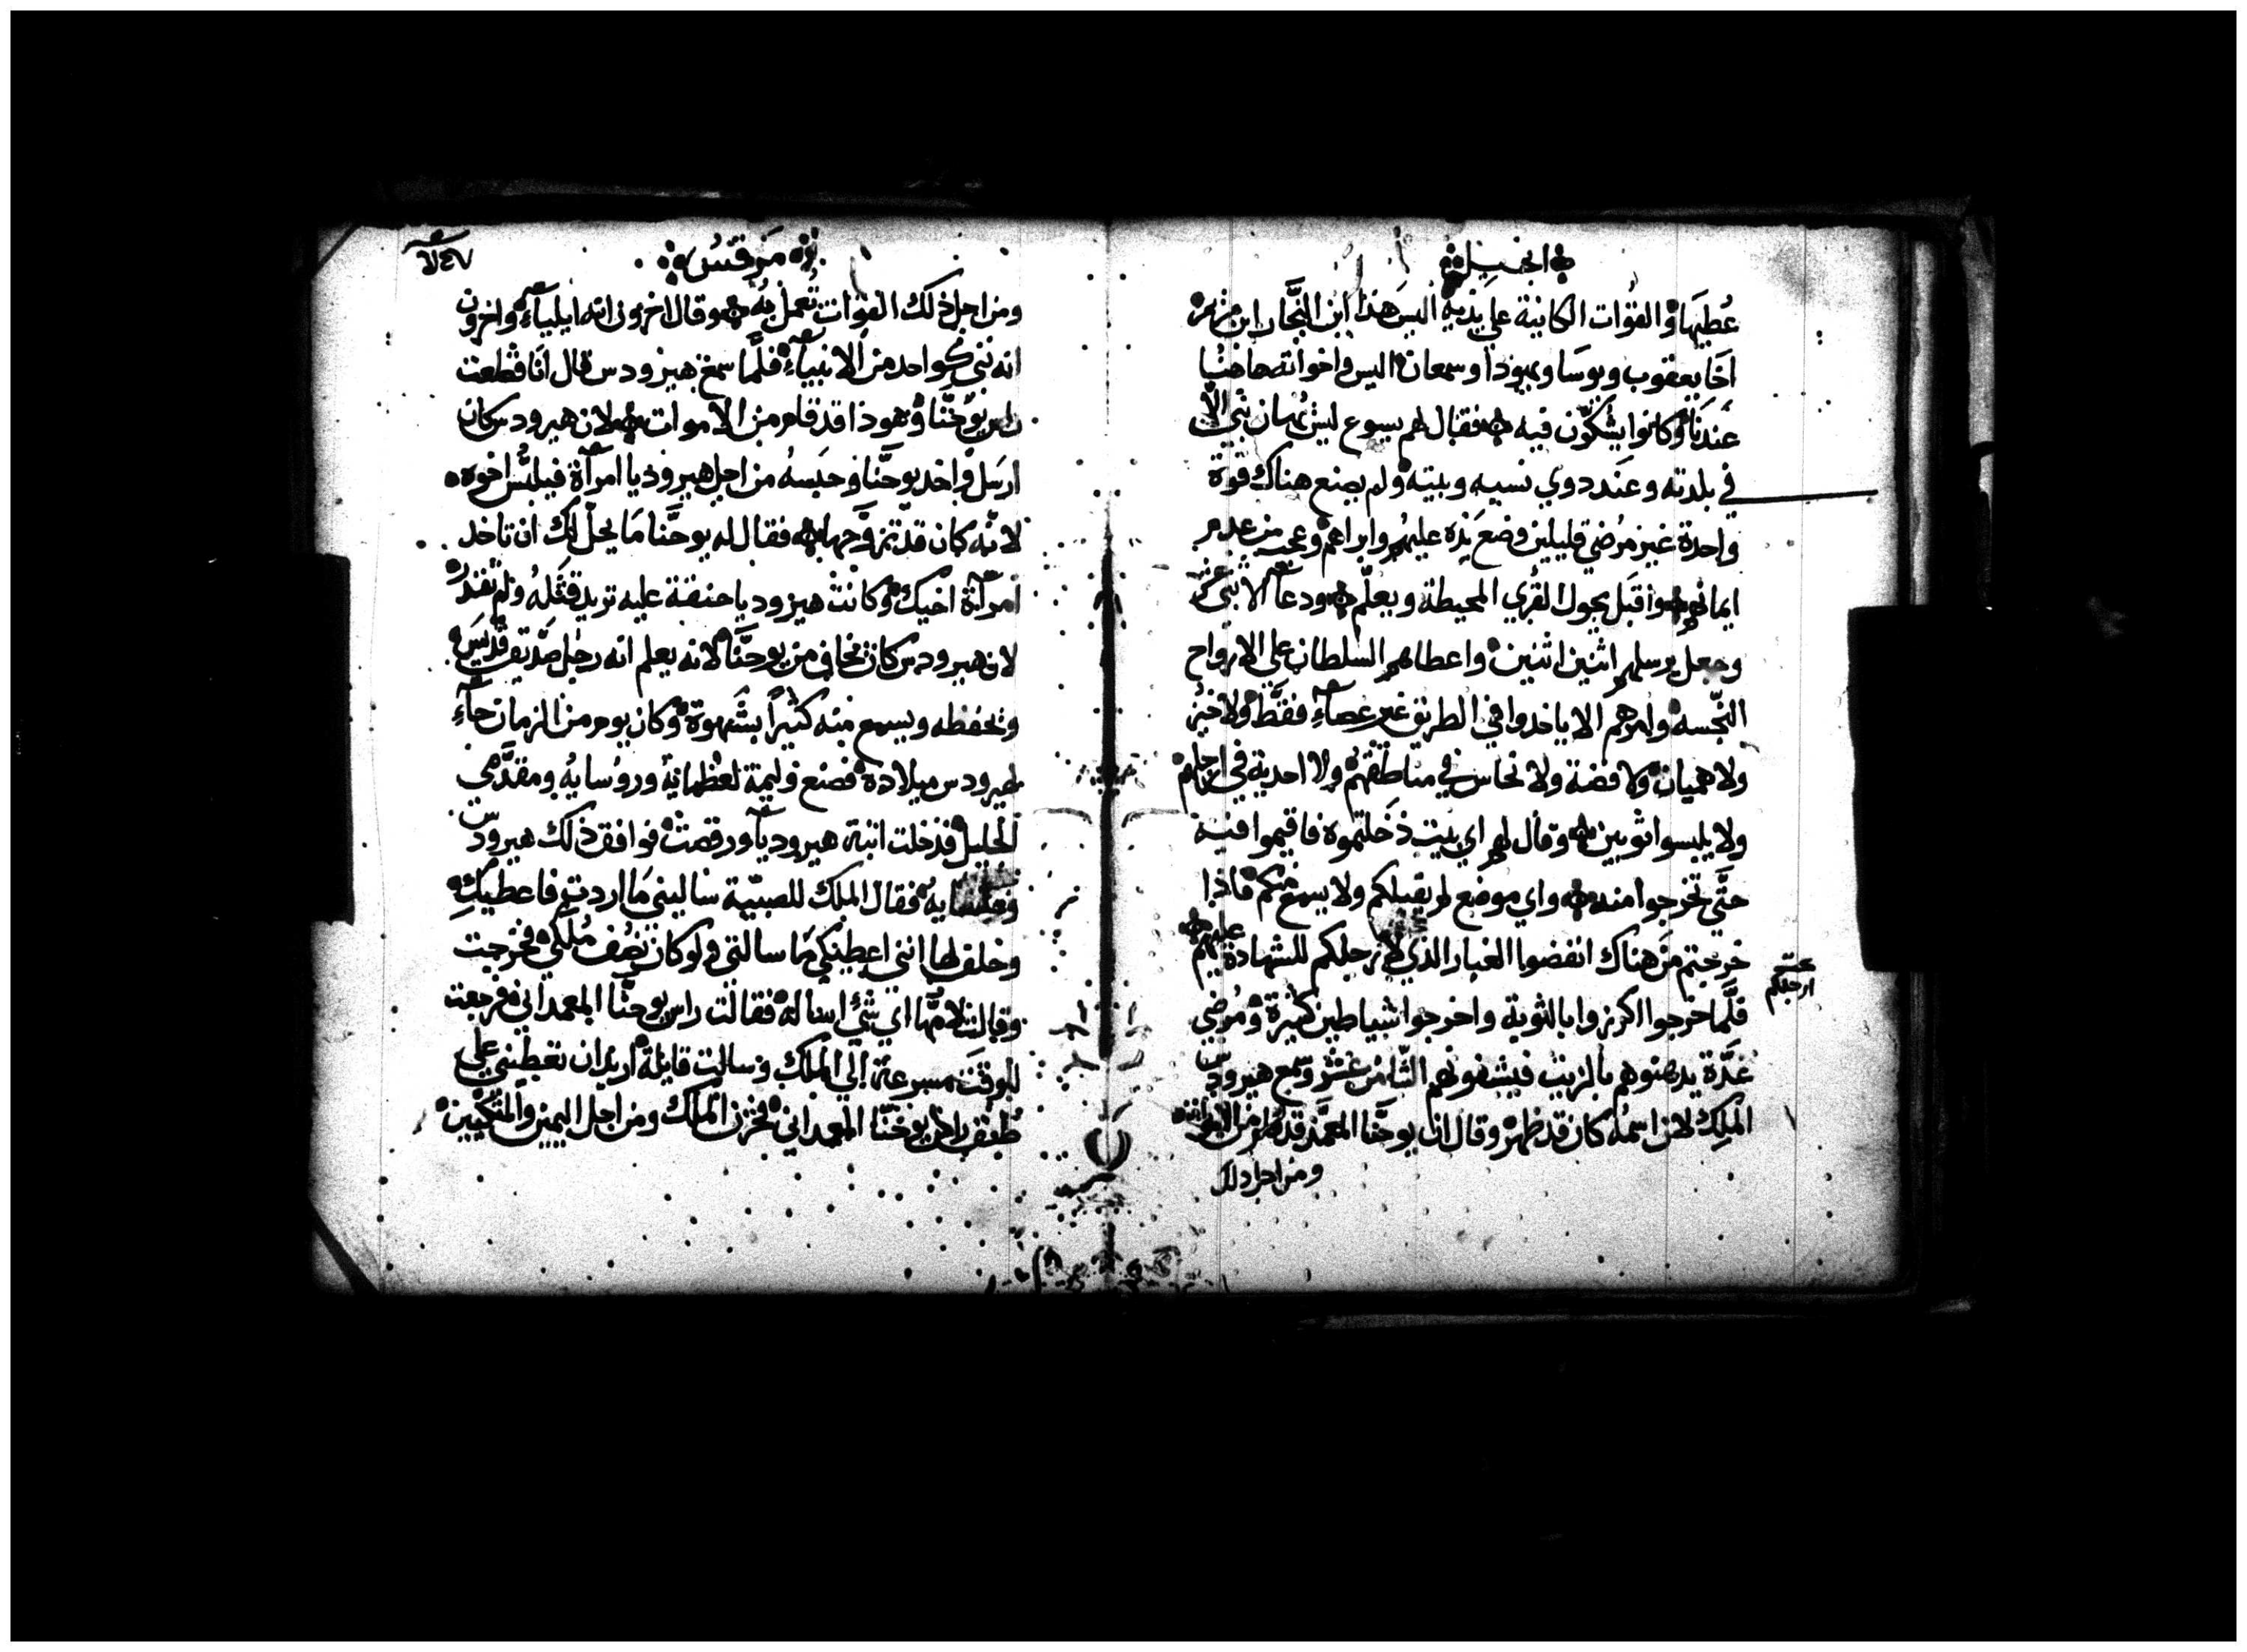 انجيل
عُطيَها والقوات الكاينة علي يديه اليسَ هذا ابن النجَّار ابن مريم
اخَا يعقوب ويوسَا ويهوذا وسمعان اليس واخواته هاهنا
عندنا وكانوا يشكّون فيه فقال لهم يسوع ليس يُهان نبي الا
في بلدته وعند دوي نسبه وبيته ولم يصنع هناك قوة
واحدة غير مرُضي قليلين وضع يَده عليهم وابراهم وعجب من عدم
ايمانهم واقبَل يجول القُري المحيطة ويعلّم ودعا الاثني عشر
وجعل يرسلهم اثنين اثنين واعطاهم السلطان علي الارواح
النّجسه وامرهم الا ياخدوا في الطريق غير عصاءٍ فقَط ولا خبز
ولا هميان ولا فضة ولا نحاس في مناطقهم ولا احدية في ارجلهم
ولا يلبسوا ثوبين وقال لهم اي بيت دَخلتموه فاقيموا فيه
حتَّي تخرجوا منه واي موضع لم يقبلكم ولا يسمع منكم فاذا
خرجتم مَن هناك انفضوا الغبار الذي لارجلكم للشهادة عليهم
تحت ارجلكم
فلَّما خرجوا اكرزوا بالتوبة واخرجوا شياطين كثيرة ومُرضي
عدَّة يدهنوهم بالزيت فيشفونهم الثامن عشر وسمع هيرودس
الملك لان اسمهُ كان قد ظهر وقال ان يوحنَّا المعمَّد قد قام من الاموات
ومن اجل ذلك
مَرقسُ
٦٤٧
ومن اجل ذلك القوات تُعمل به وقال اخرون انه ايلياءَ واخرون
انه نبي كواحد من الانبياءِ فلَّما سمع هيرودس قال انَا قطعت
راس يوحَّنا وهوذا قد قام من الاموات لان هيرودس كان
ارسَل واخد يوحَّنا وحبَسهُ من اجل هيروديا امرآة فيلبُّس اخوه
لانّه كان قد تزوَّجها فقال له يوحَّنا مَا يحل لك ان تاخد
امرآة اخيك وكانتْ هيروديا حنقة عليه تريد قتَلهُ ولم تقدر
لان هيرودس كان يخاف من يوحنَّا لانه يعلم انه رجل صَّديق قدّيس
ويحفظه ويسمع منه كثيراً بشَهوة وكان يوم من الزمان جآءِ
لهيرودس ميلاده فصنع وليمة لعُظمايه وروُسايهُ ومقدَّمي
الجليل فدخلت ابنة هيرودياَ ورقصتْ فوافق ذلك هيرودس
وجلسايه فقال الملك للصبيّة ساليني مَا اردت فاعطيكِ
وحلف لها انني اعطيكي مَا سالتي ولو كان نصُف مُلكي فخرجت
وقالت لامَّها اي شيٍ اساله فقالت راس يوحَّنا المعمداني فرجعت
للوقت مسرعة الي الملك وسالت قايلة اريد ان تعطيني علي
طبق راس يوحنَّا المعمداني فحزن الملك ومن اجل اليمين والمتكيين